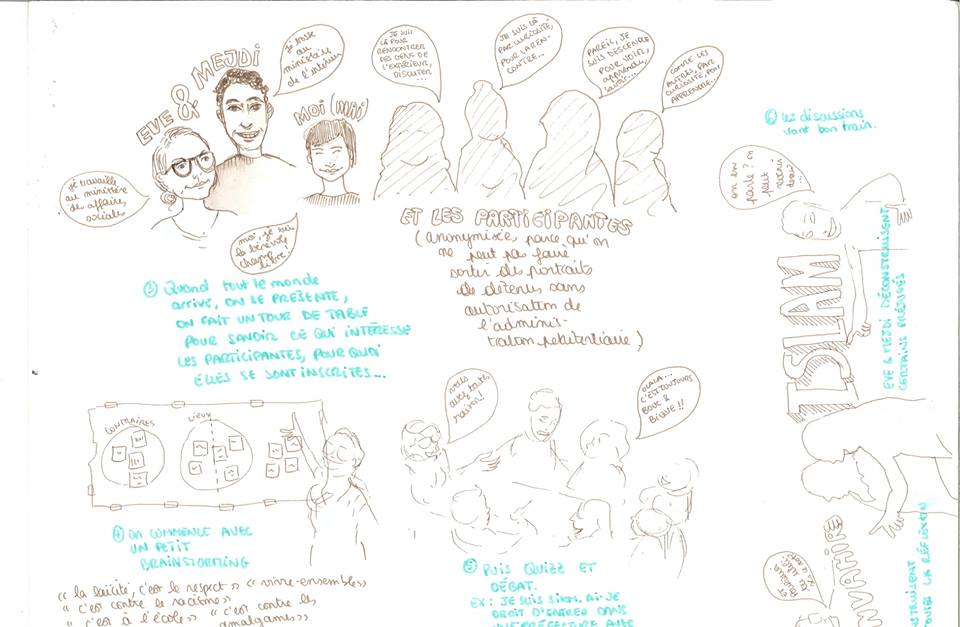 EVE & MEJDI
Je travaille
au ministère
des affaires
sociales
Je bosse
au
ministère
de l'intérieur
MOI (MAÏ)
moi, je suis
la bénévole
champ
libre!
JE SUIS
LÀ POUR
RENCONTRER
DES GENS DE
L'EXTÉRIEUR,
DISCUTER...
JE SUIS LÀ
PAR CURIOSITÉ,
POUR LA REN-
CONTRE...
PAREIL, JE
SUIS DESCENDUE
POUR VOIR,
apprendre,
savoir...
COMME LES
AUTRES, PAR
CURIOSITÉ, POUR
APPRENDRE...
ET LES PARTICIPANTES
(anonymisées, parce qu'on
ne peut pas faire
sortir des portraits
de détenus sans
autorisation de
l'adminis-
tration pénitentiaire)
③ Quand tout le monde
arrive, ON SE PRÉSENTE,
ON FAIT UN TOUR DE TABLE
POUR SAVOIR CE QUI INTÉRESSE
LES PARTICIPANTES, POURQUOI
ELLES SE SONT INSCRITES...
CONTRAIRES
LIEUX
④ ON COMMENCE AVEC
UN PETIT
BRAINSTORMING
"la laïcité, c'est le respect" "vivre-ensemble"
"c'est contre le racisme"
"c'est à l'école" "c'est contre les
amalgames"
vous
avez toutes
raison!
OLALA...
C'EST TOUJOURS
BOUC &
BICHE!!
⑤ PUIS QUIZZ ET
DÉBAT.
EX: JE SUIS SIKH. AI-JE
DROIT D'ENTRER DANS
UNE PRÉFECTURE AVEC
⑥ Les discussions
vont bon train.
on en
parle? on
peut
revenir
dessus?
ISLAM
EVE & MEJDI DÉCONSTRUISENT
CERTAINS PRÉJUGÉS